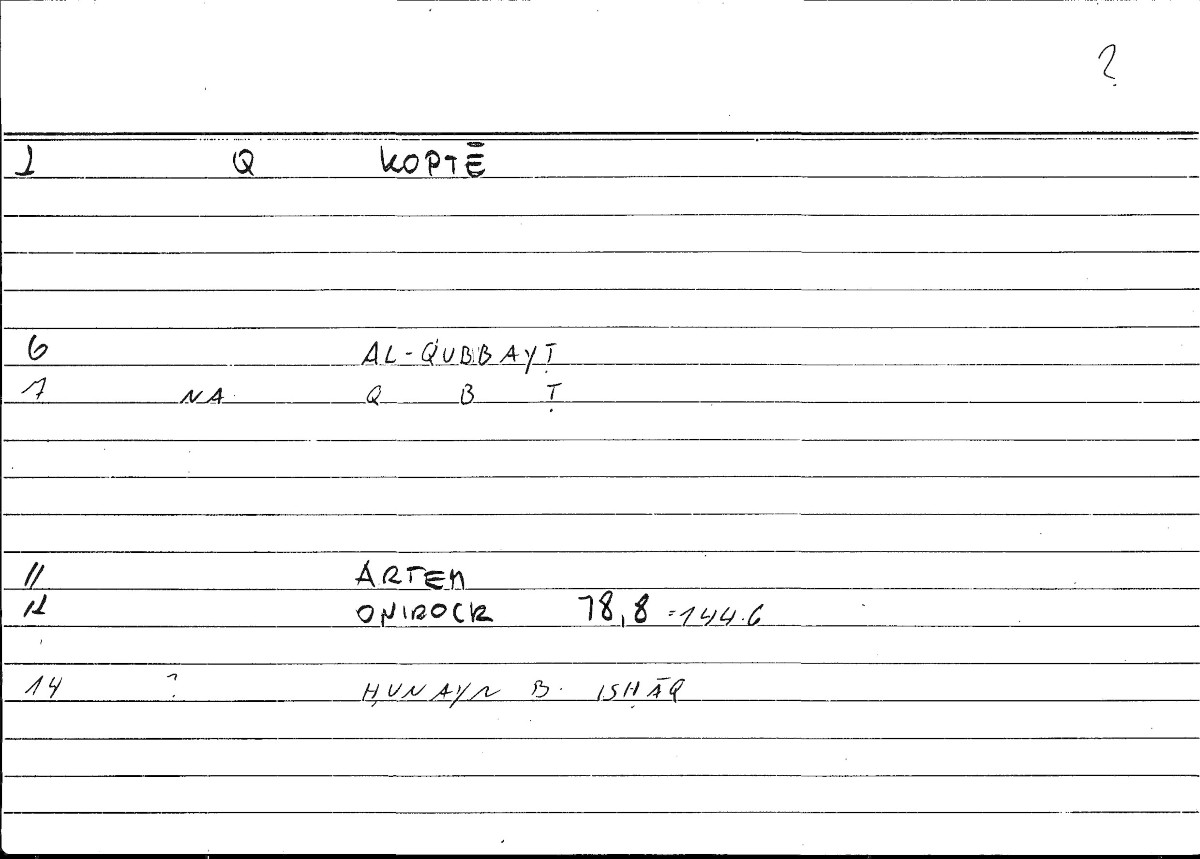 ?
1 Q KOPTĒ
6 AL-QUBBAYṬ
7 NA Q B Ṭ
11 ARTEM
12 ONIROCR 78,8 = 144.6
14 ? ḤUNAYN B. ISḤĀQ